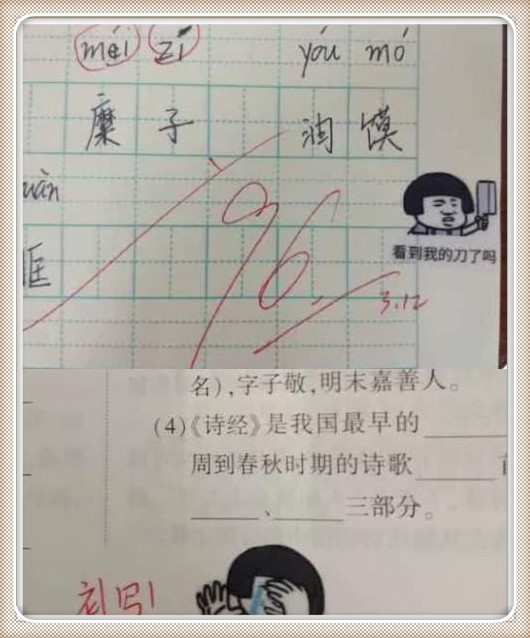 méi zǐ yóu mó
糜子 油馍
uàn
96
看到我的刀了吗
3.12
名),字子敬,明末嘉善人。
(4)《诗经》是我国最早的______
周到春秋时期的诗歌______
______、______三部分。